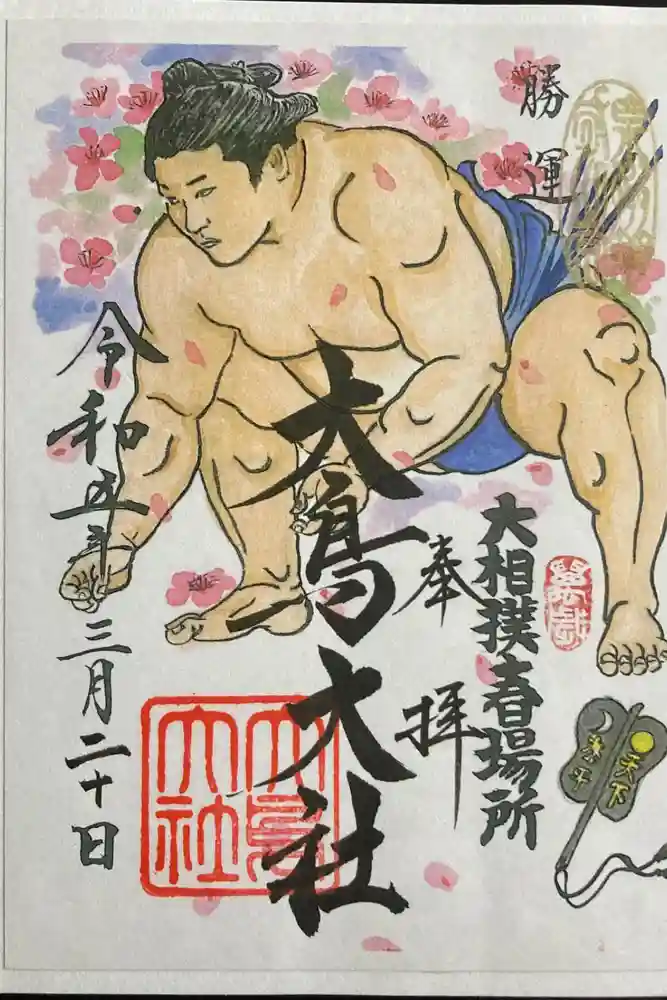 勝運
大相撲春場所
奉拝
大鳥大社
大鳥大社
令和五年
三月二十日
天下
泰平